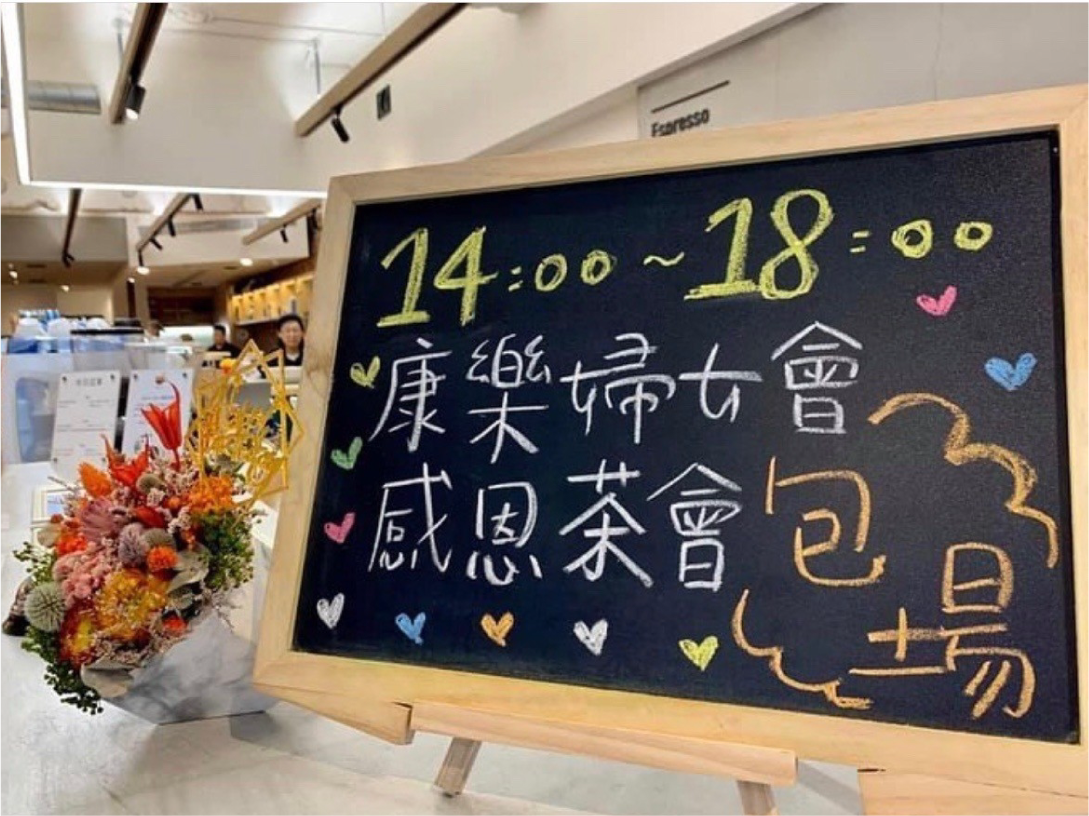 Espresso
14:00~18:00
康樂婦女會
感恩茶會包場